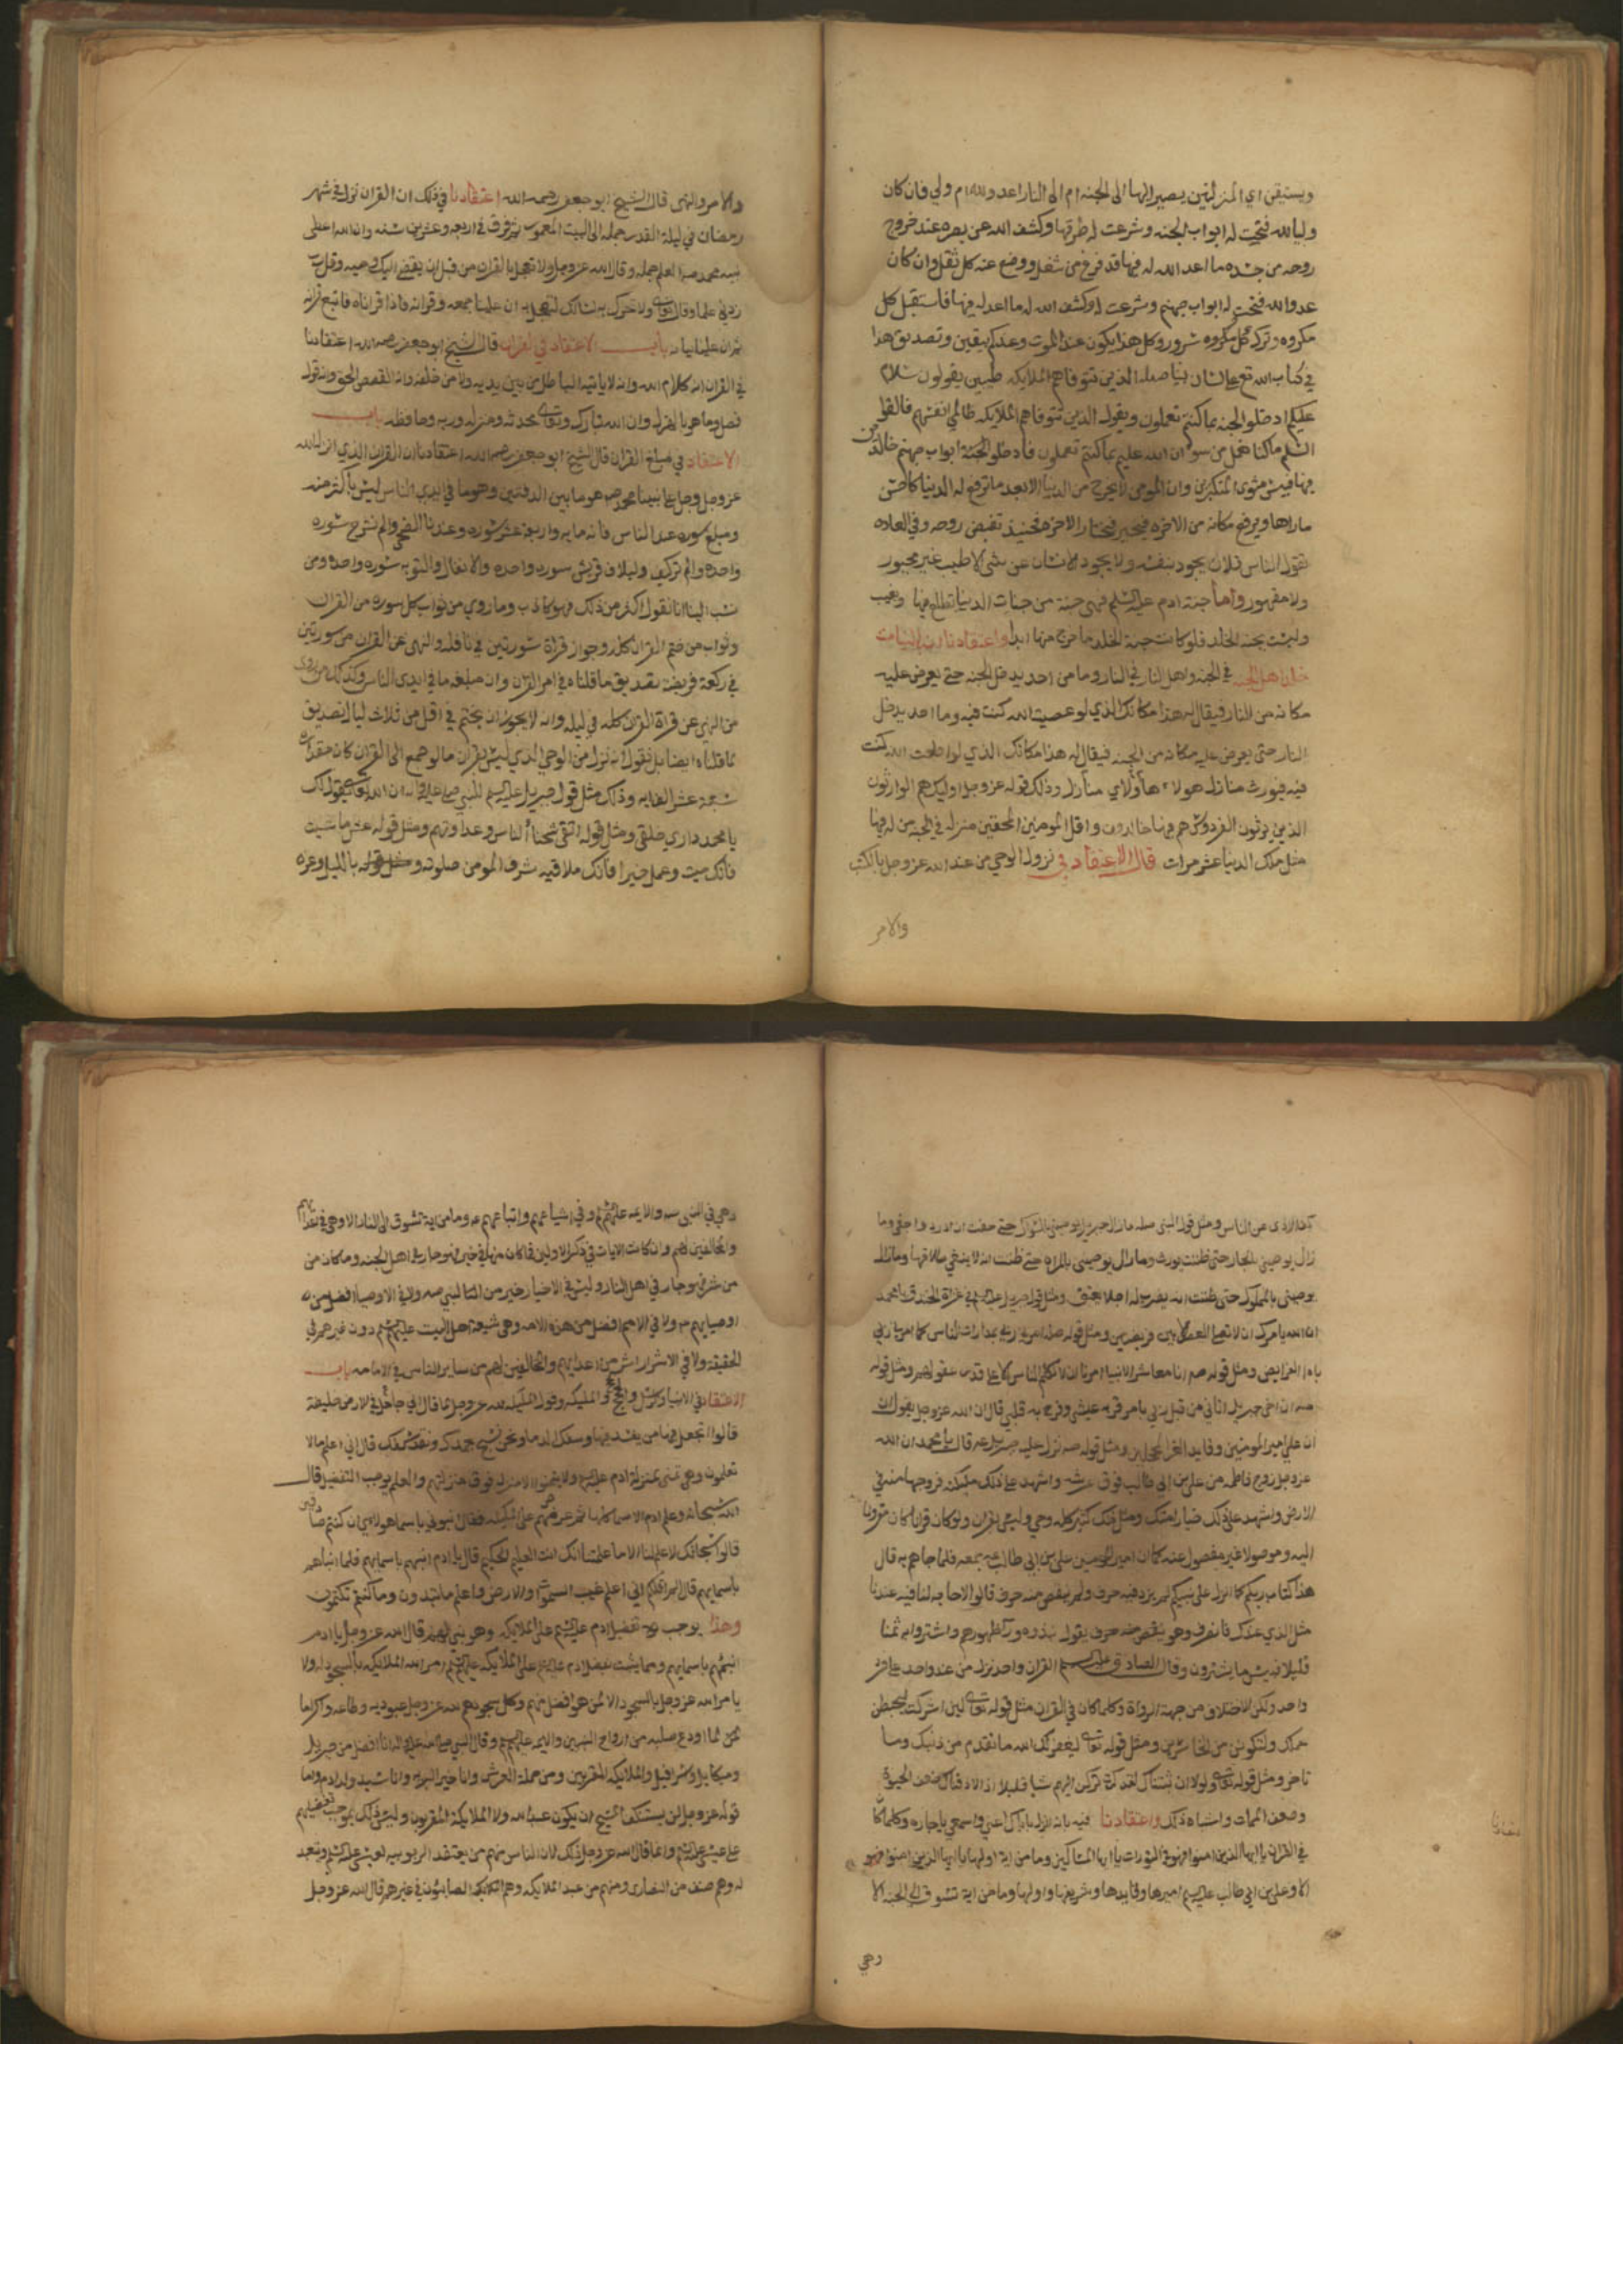 ويستيقن اي المنزلتين يصير اليها الى الجنه ام الى النار اعدو لله ام ولي فان كان
وليا لله فتحت له ابواب الجنه وشرعت له طرقها وكشف الله عن بصره عند خروج
روحه من جسده ما اعد الله له فيها قد فرغ من شغل ووضع عنه كل ثقل وان كان
عدوا لله فتحت له ابواب جهنم وشرعت له وكشف الله له ما اعد له فيها فاستقبل كل
مكروه وترك كل سرور وكل هذا يكون عند الموت وعندكم بيقين وتصديق هذا
في كتاب الله تع على لسان نبينا صلعم الذين تتوفاهم الملايكه طيبين يقولون سلام
عليكم ادخلوا الجنه بما كنتم تعملون ويقول الذين تتوفاهم الملايكه ظالمي انفسهم فالقوا
السلم ما كنا نعمل من سوء ان الله عليم بما كنتم تعملون فادخلوا ابواب جهنم خالدين
فيها فبيس مثوى المتكبرين وان المومن لا يخرج من الدنيا الا بعد ما ترفع له الدنيا كاحسن
ما راها ويرفع مكانه من الاخره فيخير فيختار الاخره فحينيذ تقبض روحه وفي العاده
يقول الناس فلان يجود بنفسه ولا يجود الانسان عن شي الا طيب غير مجبور
ولا مقهور واما جنة ادم عليه السلم فهي جنة من جنات الدنيا تطلع فيها وتغيب
وليست بجنه الخلد فلو كانت جنة الخلد ما خرج منها ابدا واعتقادنا ان بالثيامت
خلد اهل الجنه في الجنه واهل النار في النار وما من احد يدخل الجنه حتى يعرض عليه
مكانه من النار فيقال له هذا مكانك الذي لو عصيت الله كنت فيه وما احد يدخل
النار حتى يعرض عليه مكانه من الجنه فيقال له هذا مكانك الذي لو اطعت الله كنت
فيه فيورث منازل هولاء هاولاي منازل وذلك قوله عز وجل اوليك هم الوارثون
الذين يرثون الفردوس هم فيها خالدون واقل المومنين المحقين منزله في الجنه من له فيها
مثل ملك الدنيا عشر مرات قال الاعتقاد في نزول الوحي من عند الله عز وجل بالكتب
والامر
والامر والنهي قال الشيخ ابو جعفر رحمه الله اعتقادنا في ذلك ان القران نزل في شهر
رمضان في ليلة القدر جمله الى البيت المعمور ثم فرق في اربعه وعشرين سنه وان الله اعطى
نبيه محمد صه العلم جمله وقال الله عز وجل ولا تعجل بالقران من قبل ان يقضى اليك وحيه وقل رب
زدني علما وقال تعالى ولا تحرك به لسانك لتعجل به ان علينا جمعه وقرانه فاذا قراناه فاتبع قرانه
ثم ان علينا بيانه باب الاعتقاد في القران قال الشيخ ابو جعفر رحمه الله اعتقادنا
في القران انه كلام الله وانه لا ياتيه الباطل من بين يديه ولا من خلفه وانه القصص الحق وانه لقول
فصل وما هو بالهزل وان الله تبارك وتعالى محدثه ومنزله وربه وحافظه باب
الاعتقاد في مبلغ القران قال الشيخ ابو جعفر رحمه الله اعتقادنا ان القران الذي انزل الله
عز وجل على نبينا محمد صه هو ما بين الدفتين وهو ما في ايدي الناس ليس باكثر منه
ومبلغ سوره عند الناس فانه مايه واربعة عشر سوره وعندنا الضحى والم نشرح سوره
واحده والم تركيف ولايلاف قريش سوره واحده والانفال والتوبه سوره واحده ومن
نسب الينا انا نقول اكثر من ذلك فهو كاذب وما روي من ثواب كل سوره من القران
وثواب من ختم القران كله وجواز قراة سورتين في نافله والنهى عن القران من سورتين
في ركعة فريضه تصديق ما قلناه في امر القران وان مبلغه ما في ايدي الناس وكذلك ما روى
من النهي عن قراة القران كله في ليله وانه لا يجوز ان يختم في اقل من ثلاث ليال تصديق
لما قلناه ايضا بل نقول انه نزل من الوحي الذي ليس بقران ما لو جمع الى القران كان مقداره
سبعة عشر الف ايه وذلك مثل قول جبريل عليه السلم للنبي صلى الله عليه واله ان الله تعالى يقول لك
يا محمد داري خلقي ومثل قوله اتقي شحنا الناس وعداوتهم ومثل قوله عش ما شيت
فانك ميت وعمل خيرا فانك ملاقيه شرف المومن صلوته بالليل وعزه
كف الاذى عن الناس ومثل قول النبى صلعم ما زال جبريل يوصيني بالسواك حتى خفت ان ادرد واحفى وما
زال يوصيني بالجار حتى ظننت يورثه وما زال يوصيني بالمراه حتى ظننت انه لا ينبغي طلاقها وما زال
يوصيني بالمملوك حتى ظننت انه يضرب له اجلا يعتق ومثل قول جبريل عليه السلم في غزاة الخندق يا محمد
ان الله يامرك ان لا تصلي العصر الا ببني قريضه ومثل قوله صه امرني ربي بمدارات الناس كما امرني ربي
باداء الفرايض ومثل قوله صه انا معاشر الانبيا امرنا ان لا نكلم الناس الا على قدر عقولهم ومثل قوله
صه ان اخي جبريل اتاني من قبل ربي بامر قر به عيني وفرح به قلبي قال ان الله عز وجل يقول ان
ان علي امير المومنين وقايد الغر المحجلين ومثل قوله صه نزل عليه جبريل عه قال يا محمد ان الله
عز وجل زوج فاطمه من علي بن ابي طالب فوق عرشه واشهد على ذلك ملايكته فزوجها منه في
الارض واشهد على ذلك خيار امتك ومثل ذلك كثير كله وحي وليس بقران ولو كان قرانا كان مقرونا
اليه وموصولا غير مفصول عنه كما ان امير المومنين علي بن ابي طالب عه جمعه فلما جاهم به قال
هذا كتاب ربكم كما انزل على نبيكم لم يزد فيه حرف ولم ينقص منه حرف قالوا لا حاجه لنا فيه عندنا
مثل الذي عندك فانصرف وهو يقول فنبذوه وراء ظهورهم واشتروا به ثمنا
قليلا فبيس ما يشترون وقال الصادق عليه السلم القران واحد نزل من عند واحد على
واحد ولكن الاختلاف من جهة الرواة وكلما كان في القران مثل قوله تعالى لين اشركت ليحبطن
عملك ولتكونن من الخاسرين ومثل قوله تعالى ليغفر لك الله ما تقدم من ذنبك وما
تاخر ومثل قوله تعالى ولولا ان ثبتناك لقد كدت تركن اليهم شيا قليلا اذا لاذقناك ضعف الحيوة
وضعف الممات واشباه ذلك واعتقادنا فيه بانه انزل باياك اعني واسمعي يا جاره وكلما كان
في القران يا ايها الذين امنوا فهو في التورات يا ايها المساكين وما من اية اولها يا ايها الذين امنوا فهو
الا وعلي بن ابي طالب عليه السلم اميرها وقايدها وشريفها واولها وما من اية تسوق الى الجنه الا
وهي
وهي في النبي صه والايمه عليهم السلم وفي اشياعهم واتباعهم وما من اية تسوق الى النار الا وهي في اعدايهم
والمخالفين لهم وان كانت الايات في ذكر الاولين فما كان منها في خير فهو جار في اهل الجنه وما كان من
من شر فهو جار في اهل النار وليس في الاخيار خير من النبي صه ولا في الاوصيا افضل من
اوصيايهم ولا في الامم افضل من هذه الامه وهي شيعة اهل البيت عليهم السلم دون غيرهم في
الحقيقه ولا في الاشرار اشر من اعدايهم والمخالفين لهم من ساير الناس في الامامه باب
الاعتقاد في الانبيا والرسل والحجج والمليكه وقول المليكه لله عز وجل لما قال اني جاعل في الارض خليفة
قالوا اتجعل فيها من يفسد فيها ويسفك الدما ونحن نسبح بحمدك ونقدس لك قال اني اعلم ما لا
تعلمون وهي تمنى بمنزلة ادم عليه السلم ولا يتمنون الا منزله فوق منزلتهم والعلم يوجب التفضيل قال
الله سبحانه وعلم ادم الاسما كلها ثم عرضهم على المليكه فقال انبوني باسما هولاي ان كنتم صادقين
قالوا سبحانك لا علم لنا الا ما علمتنا انك انت العليم الحكيم قال يا ادم انبيهم باسمايهم فلما انباهم
باسمايهم قال الم اقل لكم اني اعلم غيب السموات والارض واعلم ما تبدون وما كنتم تكتمون
وهذا يوجب تفضيل ادم عليه السلم على الملايكه وهو نبي لهم قال الله عز وجل يا ادم
انبيهم باسمايهم ومما يثبت تفضيل ادم عليه السلم على الملايكه امر الله الملايكه بالسجود له ولا
يامر الله عز وجل بالسجود الا لمن هو افضل منهم وكان سجودهم لله عز وجل عبوديه وطاعه واكراما
لمن لما اودع صلبه من ارواح النبيين والايمه عليهم السلم وقال النبي صلى الله عليه واله انا افضل من جبريل
وميكايل واسرافيل والملايكه المقربين ومن حملة العرش وانا خير البريه وانا سيد ولد ادم واما
قوله عز وجل لن يستنكف المسيح ان يكون عبدا لله ولا الملايكة المقربون وليس ذلك بموجب تفضيلهم
على عيسى عليه السلم وانما قال الله عز وجل ذلك لان الناس منهم من يعتقد الربوبيه لعيسى عليه السلم وتعبد
له وهم صنف من النصارى ومنهم من عبد الملايكه وهم الصابيون وغيرهم قال الله عز وجل